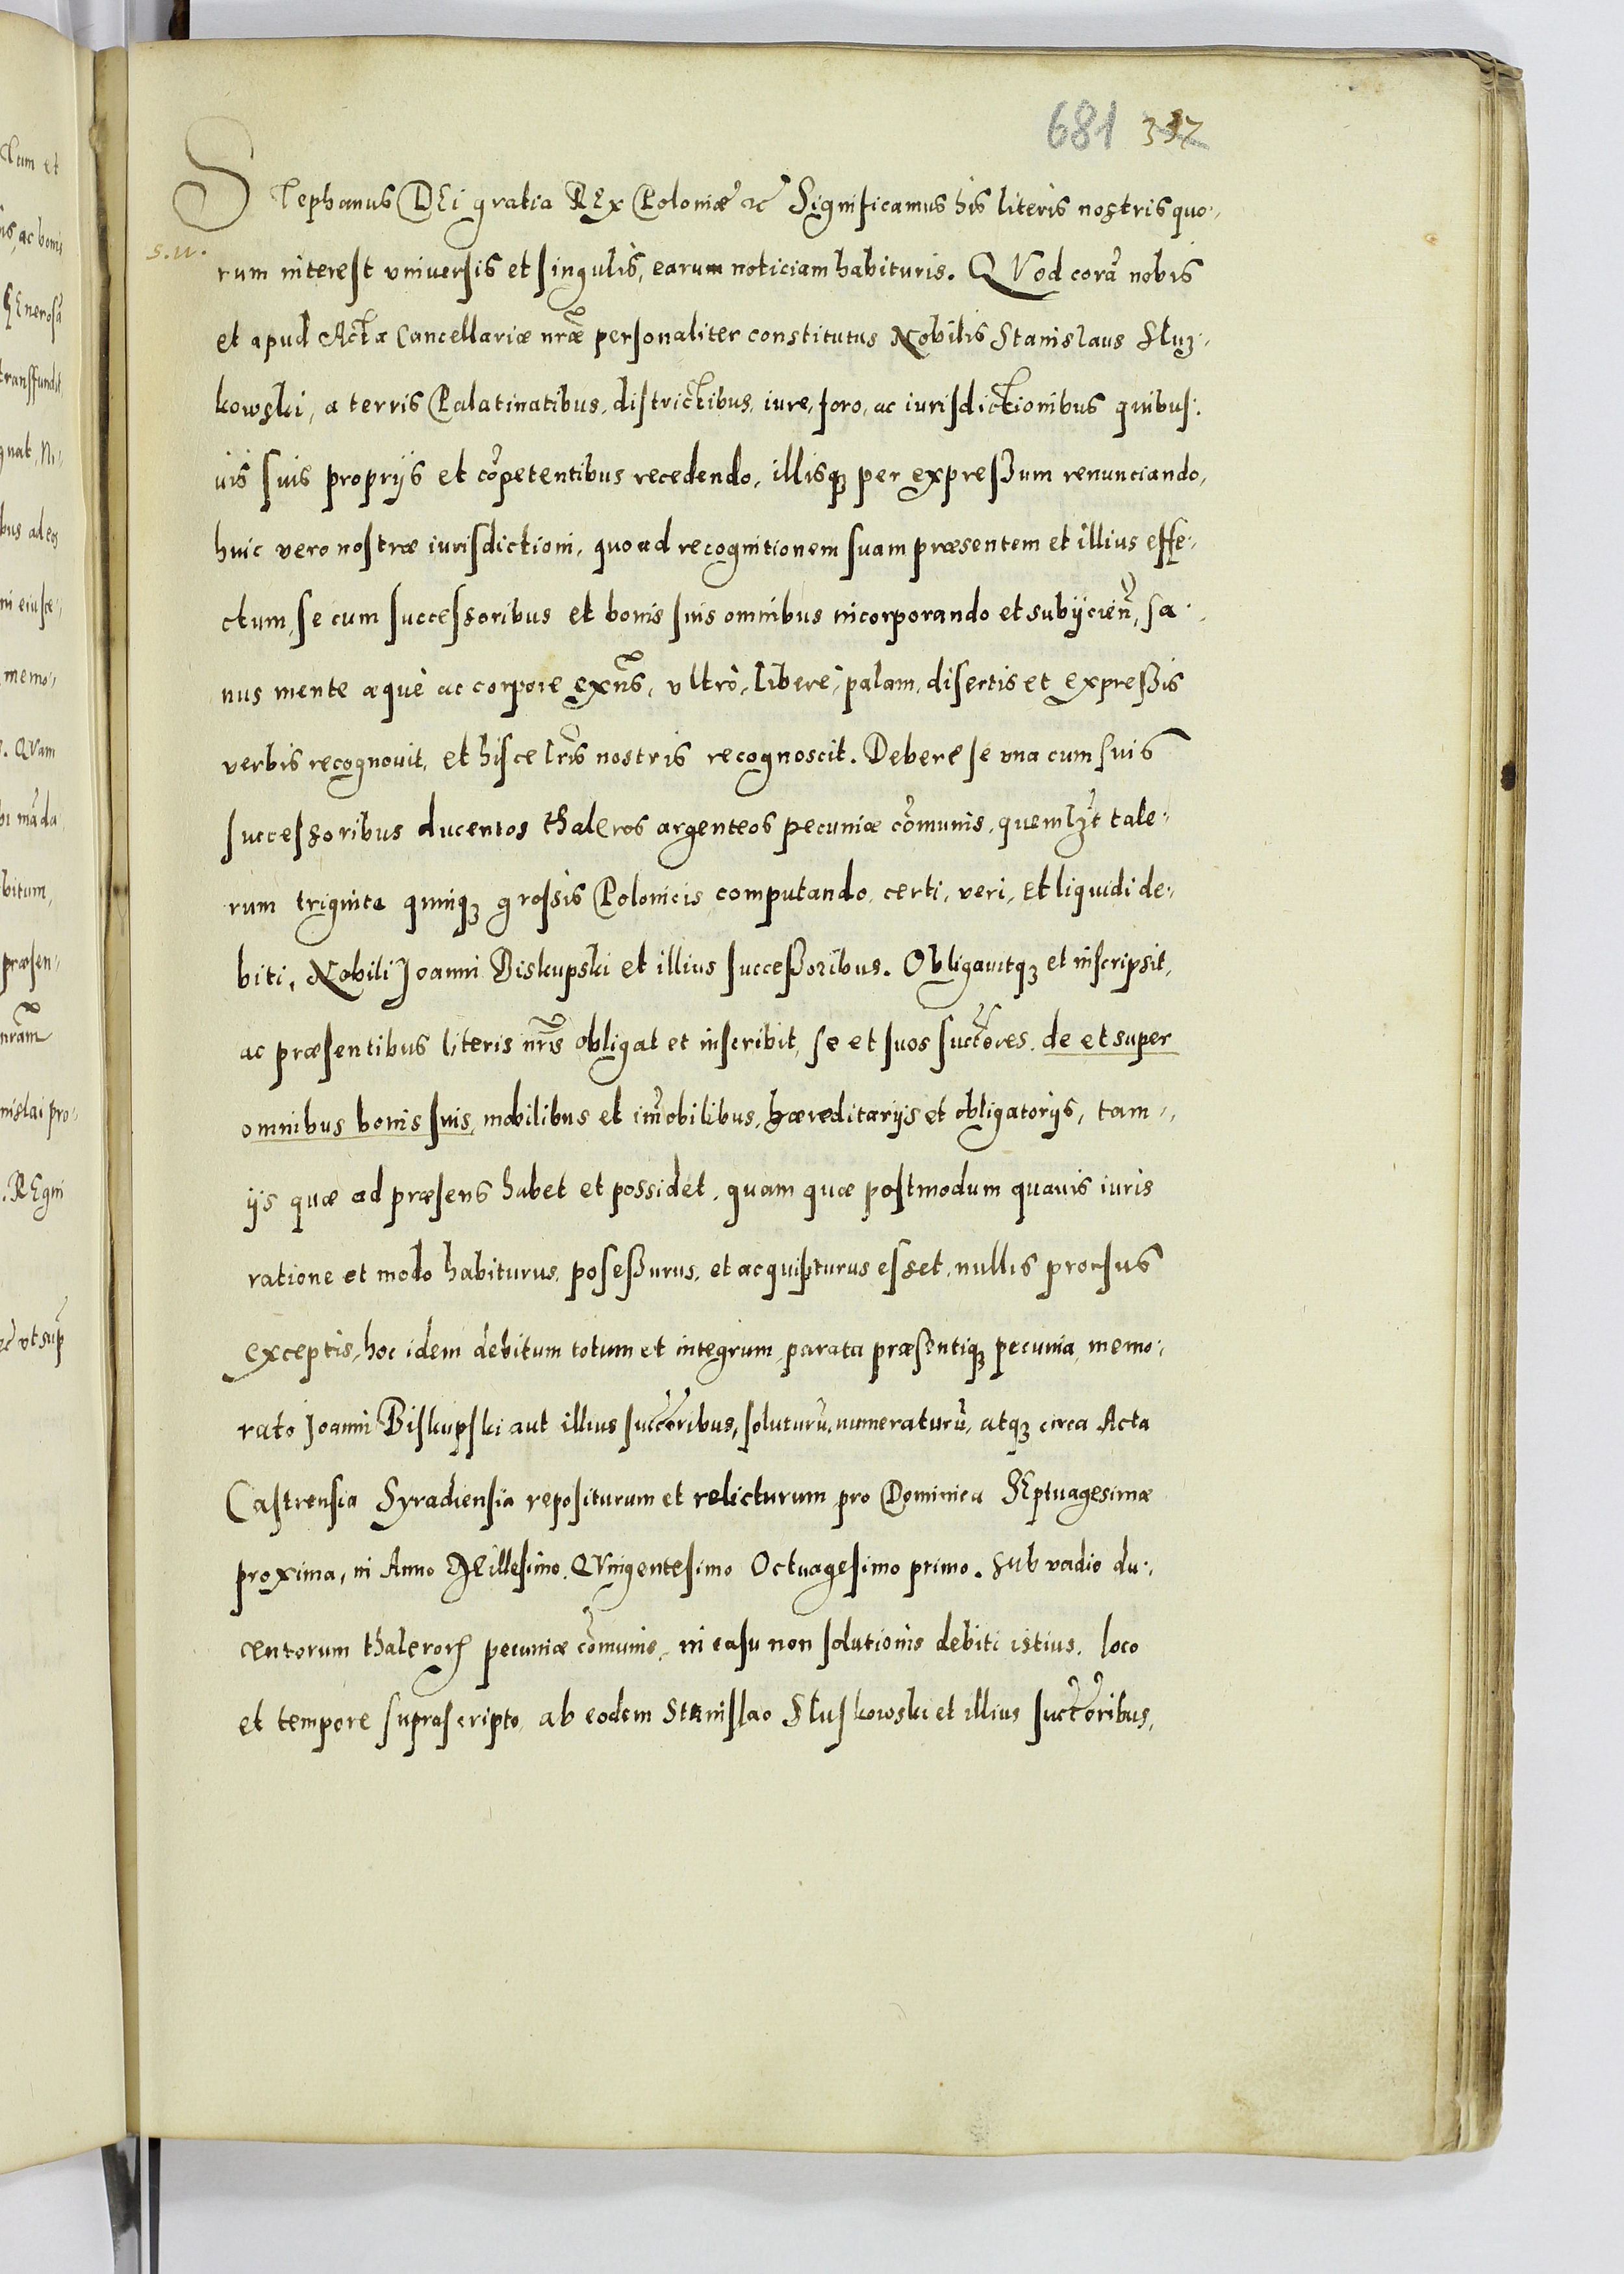 681 332
Stephanus DEi gratia REx Poloniæ etc̃ Significamus his literis nostris quo-
s.w.
rum interest vniuersis et singulis, earum noticiam habituris. QVod corã nobis
et apud Acta Cancellariæ nr̃æ personaliter constitutus Nobilis Stanislaus Sluz-
kowski, a terris Palatinatibus, districtibus, iure, foro, ac iurisdictionibus quibus-
uis suis proprijs et cõpetentibus recedendo, illisqꝫ per expreßum renunciando,
huic vero nostræ iurisdictioni, quoad recognitionem suam præsentem et illius effe-
ctum, se cum successoribus et bonis suis omnibus incorporando et subijcieñ, sa-
nus mente æquè ac corpore exñs, vltrò, liberè, palam, disertis et expreßis
verbis recognouit, et hisce lr̃is nostris recognoscit. Debere se vna cum suis
successoribus ducentos thaleros argenteos pecuniæ cõmunis, quemlꝫt tale-
rum triginta quinqꝫ grossis Polonicis computando, certi, veri, et liquidi de-
biti, Nobili Joanni Biskupski et illius succeßoribus. Obligauitqꝫ et inscripsit,
ac præsentibus literis nr̃is obligat et inscribit, se et suos succ̃ores, de et super
omnibus bonis suis, mobilibus et im̃obilibus, hæreditarijs et obligatorijs, tam
ijs quæ ad præsens habet et possidet, quam quæ postmodum quauis iuris
ratione et modo habiturus, poseßurus, et acquisiturus esset, nullis prorsus
exceptis, hoc idem debitum totum et integrum, parata præsentiqꝫ pecunia, memo-
rato Joanni Biskupski aut illius succ̃oribus, soluturũ, numeraturũ, atqꝫ circa Acta
Castrensia Syradiensia repositurum et relicturum pro Dominica SEptuagesimæ
proxima, in Anno Millesimo, QVingentesimo Octuagesimo primo. Sub vadio du-
centorum thalerorꝝ pecuniæ cõmunis, in casu non solutionis debiti istius, loco
et tempore suprascripto, ab eodem Stanislao Sluskowski et illius succ̃oribus,